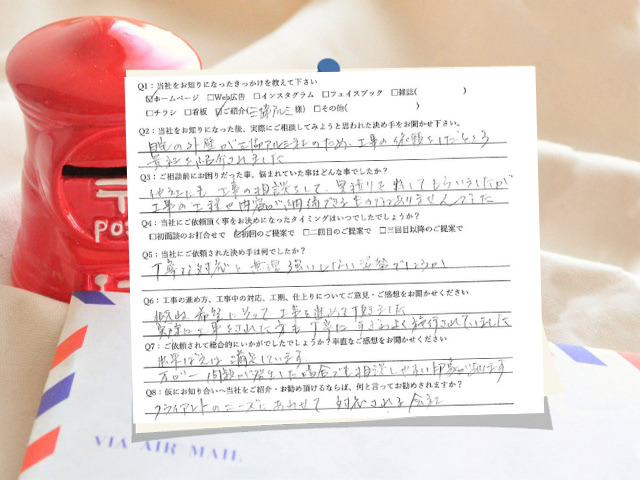 Q1：当社をお知りになったきっかけを教えて下さい
☑ホームページ □Web広告 □インスタグラム □フェイスブック □雑誌( )
□チラシ □看板 ☑ご紹介(三協アルミ様) □その他( )
Q2：当社をお知りになった後、実際にご相談してみようと思われた決め手をお聞かせ下さい。
自宅の外壁が三協アルミ社のため、工事の依頼をしたところ
貴社を紹介されました
Q3：ご相談前にお困りだった事、悩まれていた事はどんな事でしたか？
他社にも工事の相談をして、見積りを出してもらいましたが
工事の工程や内容が納得できるものではありませんでした
Q4：当社にご依頼頂く事をお決めになったタイミングはいつでしたでしょうか？
□初面談のお打合せで ☑初回のご提案で □二回目のご提案で □三回目以降のご提案で
Q5：当社にご依頼された決め手は何でしたか？
丁寧な対応と無理強いしない姿勢でしょうか
Q6：工事の進め方、工事中の対応、工期、仕上りについてご意見・ご感想をお聞かせください
概ね希望に沿って工事を進めて頂きました
実際に工事をされた方も丁寧に手ぎわよく施行されていました
Q7：ご依頼されて総合的にいかがでしたでしょうか？率直なご感想をお聞かせください
出来ばえは満足しています
万が一問題が発生した場合でも相談しやすい印象があります
Q8：仮にお知り合いへ当社をご紹介・お勧め頂けるならば、何と言ってお勧めされますか？
クライアントのニーズにあわせて対応される会社
POS
VIA AIR MAIL